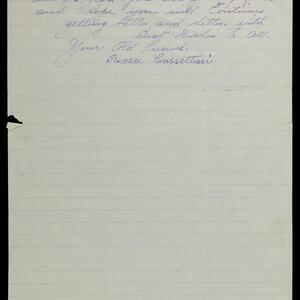 and I hope you will Continue
getting better and better with
Best Wishes To All.
Your Old Friend.
Roosie Cassettari